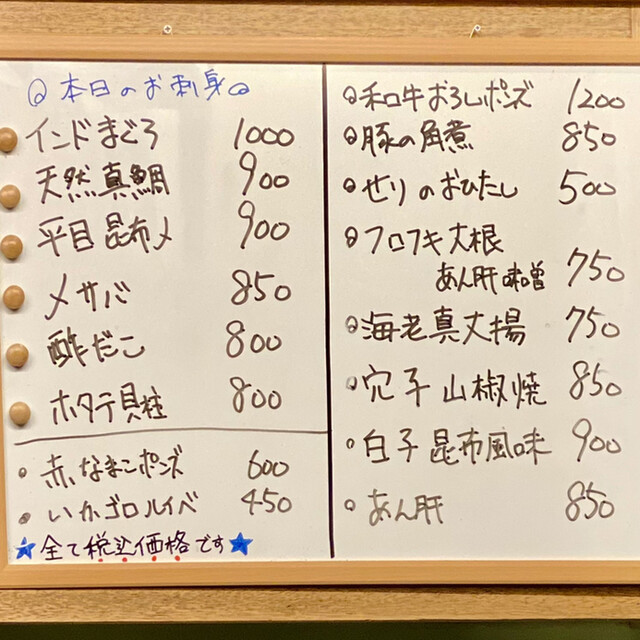 本日のお刺身
インドまぐろ 1000
天然真鯛 900
平目昆布〆 900
〆サバ 850
酢だこ 800
ホタテ貝柱 800
赤なまこポンズ 600
いかゴロルイベ 450
★全て税込価格です★
和牛おろしポンズ 1200
豚の角煮 850
せりのおひたし 500
フロフキ大根
あん肝味噌 750
海老真丈揚 750
穴子山椒焼 850
白子昆布風味 900
あん肝 850